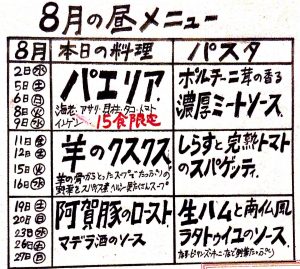 8月の昼メニュー
8月 本日の料理 パスタ
2日㊌
5日㊏
6日㊐
8日㊋
9日㊌
パエリア
海老・アサリ・貝柱・タコ・トマト
インゲン
15食限定
ポルチーニ茸の香る
濃厚ミートソース。
11日㊎
12日㊏
15日㊋
16日㊌
羊のクスクス。
羊の骨からとったスープでたっぷりの
野菜をスパイス煮
しらすと完熟トマト
のスパゲッティ。
19日㊏
20日㊐
23日㊌
26日㊏
27日㊐
阿賀豚のロースト
マデラ酒のソース
生ハムと南仏風
ラタトゥイユのソース。